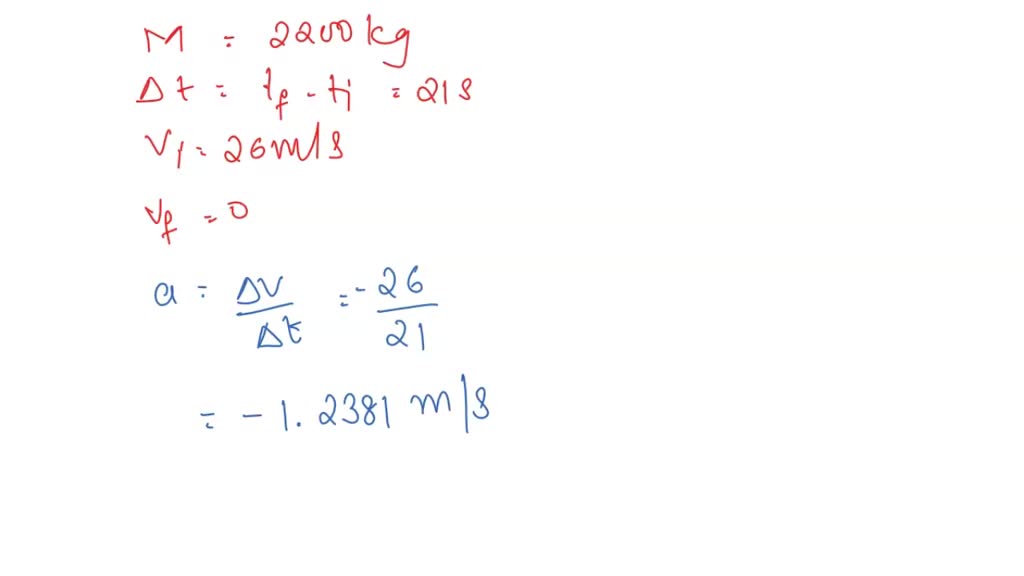 M = 2200 kg
Δt = tf - ti = 21s
Vi = 26 m/s
Vf = 0
a = ΔV/Δt = -26/21
= -1.2381 m/s